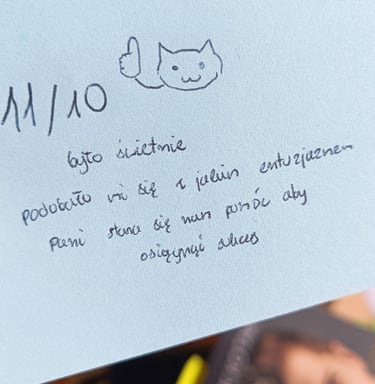 11/10
było świetnie
podobało mi się z jakim entuzjazmem
Pani stara się nam pomóc aby
osiągnąć sukces